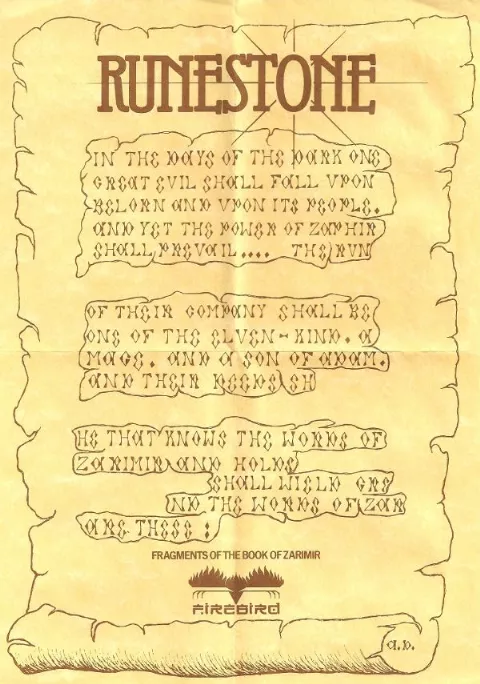 RUNESTONE
IN THE DAYS OF THE DARK ONE
GREAT EVIL SHALL FALL UPON
BELORN AND UPON ITS PEOPLE.
AND YET THE POWER OF ZAPHIR
SHALL PREVAIL.... THE RUN
OF THEIR COMPANY SHALL BE
ONE OF THE ELVEN-KIND, A
MAGE, AND A SON OF ADAM.
AND THEIR DEEDS SH
HE THAT KNOWS THE WORDS OF
ZARIMIR AND HOLDS
SHALL WIELD GRE
ND THE WORDS OF ZAR
ARE THESE :
FRAGMENTS OF THE BOOK OF ZARIMIR
FIREBIRD
a.D.